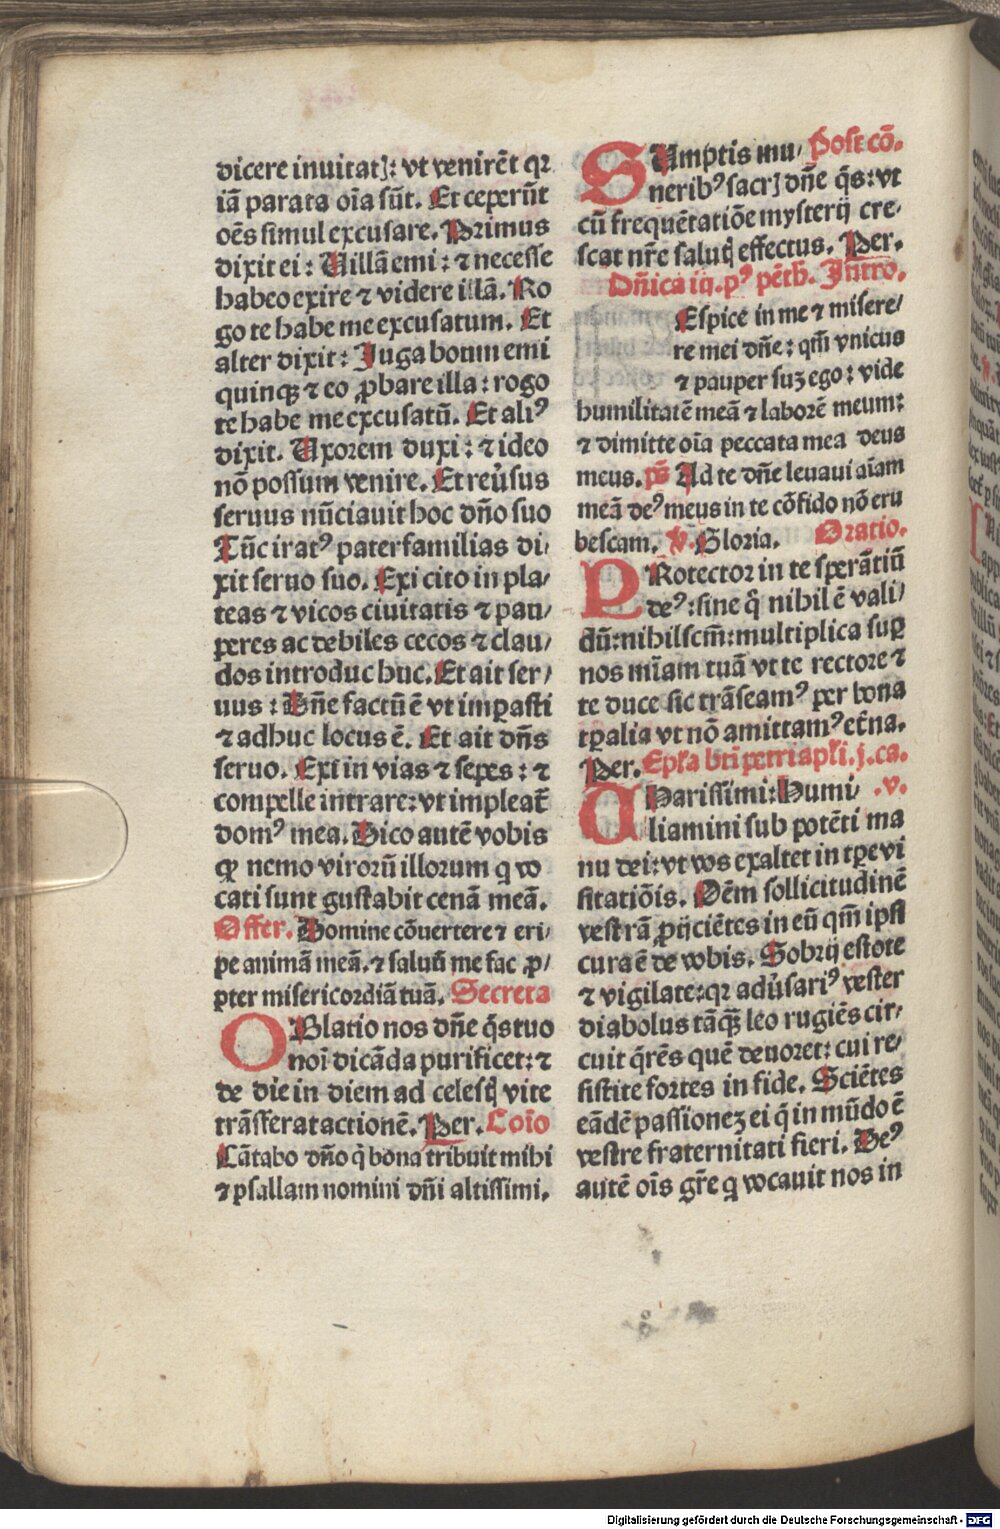 dicere inuitatꝭ: vt venirēt qꝛ
iā parata oīa sūt. Et ceperūt
oēs simul excusare. Primus
dixit ei: Uillā emi: ⁊ necesse
habeo exire ⁊ videre illā. Ro
go te habe me excusatum. Et
alter dixit: Juga boum emi
quinqꝫ ⁊ eo ꝓbare illa: rogo
te habe me excusatū. Et aliꝰ
dixit. Uxorem duxi: ⁊ ideo
nō possum venire. Et reu̓sus
seruus nūciauit hoc dn̄o suo
Tūc iratꝰ paterfamilias di/
xit seruo suo. Exi cito in pla/
teas ⁊ vicos ciuitatis ⁊ pau/
peres ac debiles cecos ⁊ clau/
dos introduc huc. Et ait ser/
uus: Dn̄e factū ē vt imꝑasti
⁊ adhuc locus ē. Et ait dn̄s
seruo. Exi in vias ⁊ sepes: ⁊
compelle intrare: vt impleat̄
domꝰ mea. Dico autē vobis
ꝙ nemo virorū illorum q vo
cati sunt gustabit cenā meā.
Offer. Domine cōuertere ⁊ eri/
pe animā meā. ⁊ saluū me fac ꝓ/
pter misericordiā tuā. Secreta
OBlatio nos dn̄e q̄s tuo
noī dicāda purificet: ⁊
de die in diem ad celesꝗ̄ vite
trāsferat actionē. Per. Coīo
Cātabo dn̄o q̇ bona tribuit mihi
⁊ psallam nomini dn̄i altissimi.
SUmptis mu/ Post cō.
neribꝰ sacrꝭ dn̄e q̄s: vt
cū frequētatiōe mysterij cre/
scat nr̄e salutꝭ effectus. Per.
Dn̄ica iij. pꝰ pēth. Intro.
Espice in me ⁊ misere/
re mei dn̄e: qm̄ vnicus
⁊ pauper suꝫ ego: vide
humilitatē meā ⁊ laborē meum:
⁊ dimitte oīa peccata mea deus
meus. ps̄ Ad te dn̄e leuaui aīam
meā deꝰ meus in te cōfido nō eru
bescam. V. Gloria. Oratio.
PRotector in te sperātiū
deꝰ: sine q̄ nihil ē vali/
dū: nihil scm̄: multiplica suꝑ
nos mīam tuā vt te rectore ⁊
te duce sic trāseamꝰ per bona
tꝑalia vt nō amittamꝰ et̄na.
Per. Ep̄la bt̄i petri apl̄i. j. ca.
CHarissimi: Humi/ .v.
liamini sub potēti ma
nu dei: vt vos exaltet in tꝑe vi
sitatiōis. Oēm sollicitudinē
vestrā ꝓijciētes in eū qm̄ ipsi
cura ē de vobis. Sobrij estote
⁊ vigilate: qꝛ adu̓sariꝰ vester
diabolus tāqꝫ̄ leo rugiēs cir/
cuit q̄rēs quē deuoret: cui re/
sistite fortes in fide. Sciētes
eādē passioneꝫ ei q̇ in mūdo ē
vestre fraternitati fieri. Deꝰ
autē oīs gr̄e q vocauit nos in
Digitalisierung gefördert durch die Deutsche Forschungsgemeinschaft - DFG